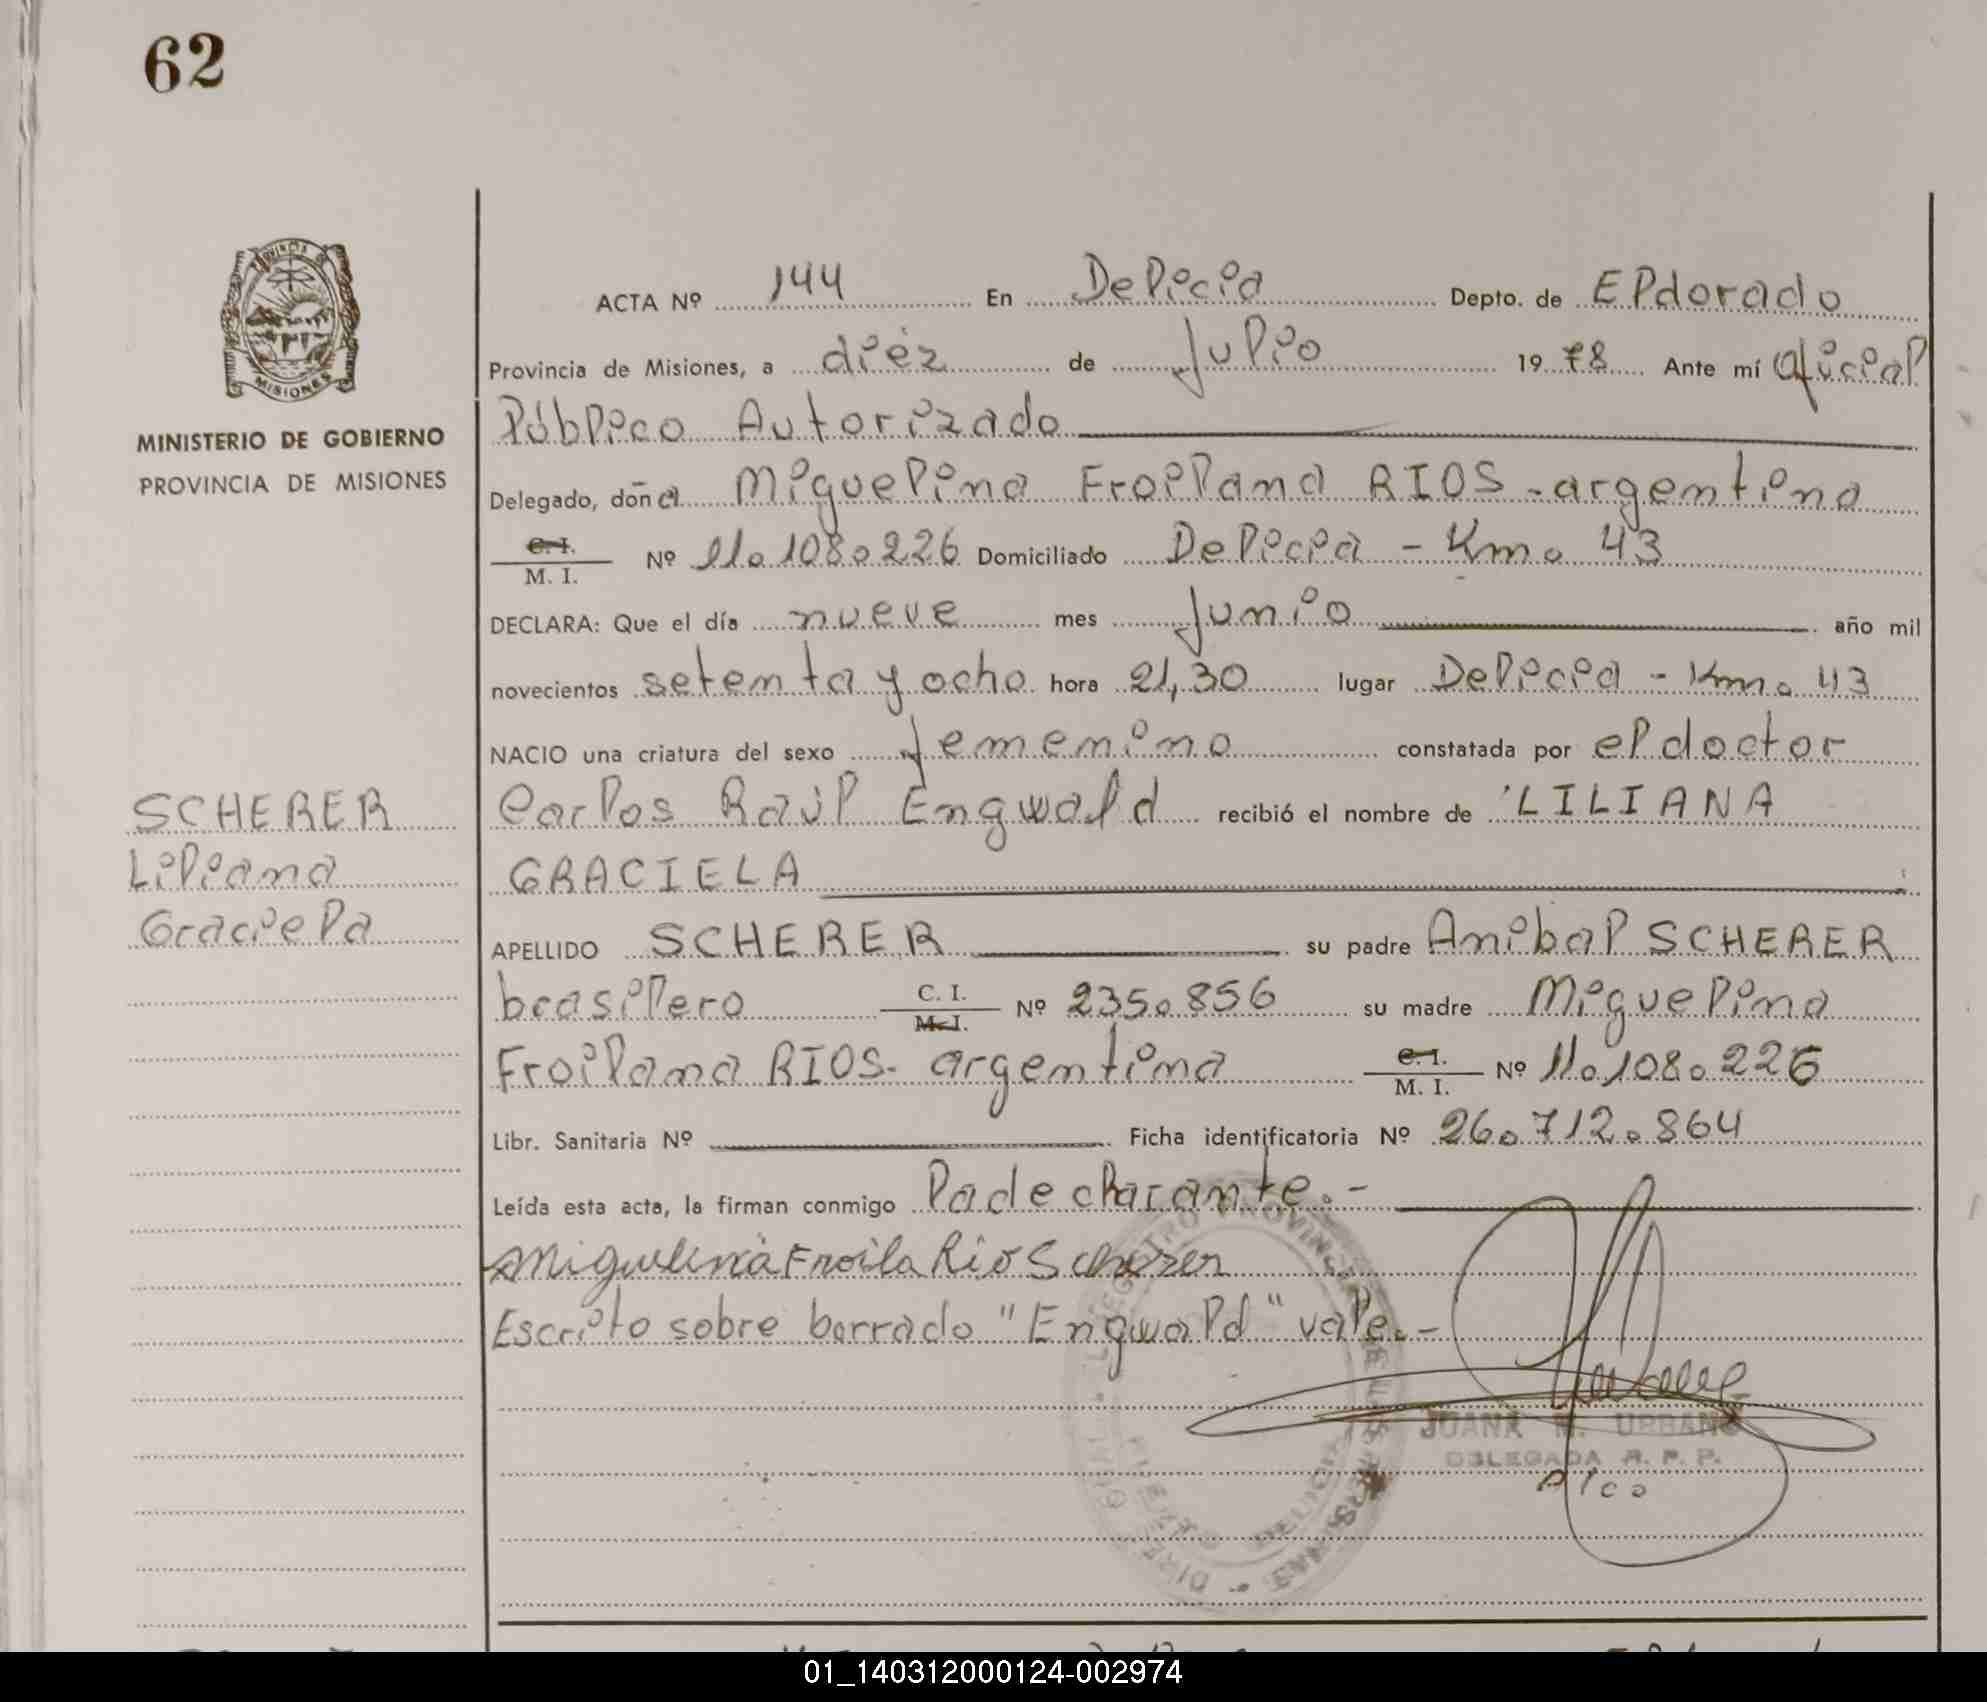 62
PROVINCIA DE
MISIONES
MINISTERIO DE GOBIERNO
PROVINCIA DE MISIONES
SCHERER
Liliana
Graciela
ACTA Nº 144 En Delicia Depto. de Eldorado
Provincia de Misiones, a diéz de Julio 1978 Ante mí Oficial
Público Autorizado
Delegado, doña Miguelina Froilana RIOS - argentina
C. I.
M. I. Nº 11.108.226 Domiciliado Delicia - Km. 43
DECLARA: Que el día nueve mes Junio año mil
novecientos setenta y ocho hora 21,30 lugar Delicia - Km. 43
NACIO una criatura del sexo femenino constatada por el doctor
Carlos Raúl Engwald recibió el nombre de LILIANA
GRACIELA
APELLIDO SCHERER su padre Anibal SCHERER
brasilero C. I. M. I. Nº 235.856 su madre Miguelina
Froilana RIOS - argentina C. I. M. I. Nº 11.108.226
Libr. Sanitaria Nº Ficha identificatoria Nº 26.712.864
Leída esta acta, la firman conmigo la declarante.-
Miguelina Froila Rio Scherer
Escrito sobre borrado "Engwald" vale.-
JUANA URBANO
DELEGADA R. P. P.
01_140312000124-002974